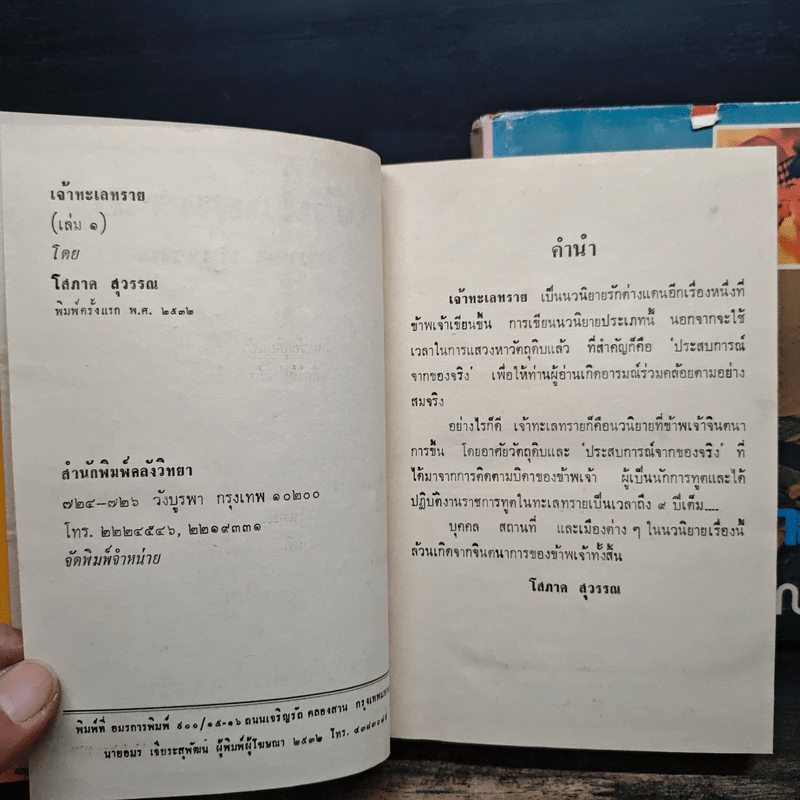 เจ้าทะเลทราย
(เล่ม ๑)
โดย
โสภาค สุวรรณ
พิมพ์ครั้งแรก พ.ศ. ๒๕๓๒
สำนักพิมพ์คลังวิทยา
๗๒๔–๗๒๖ วังบูรพา กรุงเทพ ๑๐๒๐๐
โทร. ๒๒๒๔๕๔๖, ๒๒๑๙๓๓๑
จัดพิมพ์จำหน่าย
พิมพ์ที่ อมรการพิมพ์ ๙๐๐/๑๕-๑๖ ถนนเจริญรัถ คลองสาน
นายอมร เจียระสุพัฒน์ ผู้พิมพ์ผู้โฆษณา ๒๕๓๒ โทร.
คำนำ
เจ้าทะเลทราย เป็นนวนิยายรักต่างแดนอีกเรื่องหนึ่งที่
ข้าพเจ้าเขียนขึ้น การเขียนนวนิยายประเภทนี้ นอกจากจะใช้
เวลาในการแสวงหาวัตถุดิบแล้ว ที่สำคัญก็คือ ‘ประสบการณ์
จากของจริง’ เพื่อให้ท่านผู้อ่านเกิดอารมณ์ร่วมคล้อยตามอย่าง
สมจริง
อย่างไรก็ดี เจ้าทะเลทรายก็คือนวนิยายที่ข้าพเจ้าจินตนา
การขึ้น โดยอาศัยวัตถุดิบและ ‘ประสบการณ์จากของจริง’ ที่
ได้มาจากการติดตามบิดาของข้าพเจ้า ผู้เป็นนักการทูตและได้
ปฏิบัติงานราชการทูตในทะเลทรายเป็นเวลาถึง ๙ ปีเต็ม.....
บุคคล สถานที่ และเมืองต่าง ๆ ในนวนิยายเรื่องนี้
ล้วนเกิดจากจินตนาการของข้าพเจ้าทั้งสิ้น
โสภาค สุวรรณ